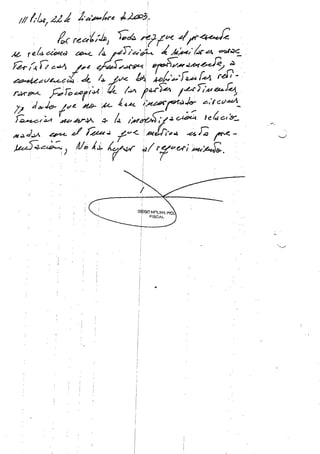 /// Pilar, 22 de Diciembre de 2003.
Por recibido, Toda vez que el presente
se relaciona con la petición de similares carac
terísticas que efectuaron oportunamente, a
consecuencia de la que los solicitantes reti-
raron fotocopias de las partes pertinentes
y, dado que no se han incorporado circuns
tancias nuevas a la investigación relacio-
nadas con el tema que motiva esta pre-
sentación, No ha lugar al requerimiento.
FISCAL